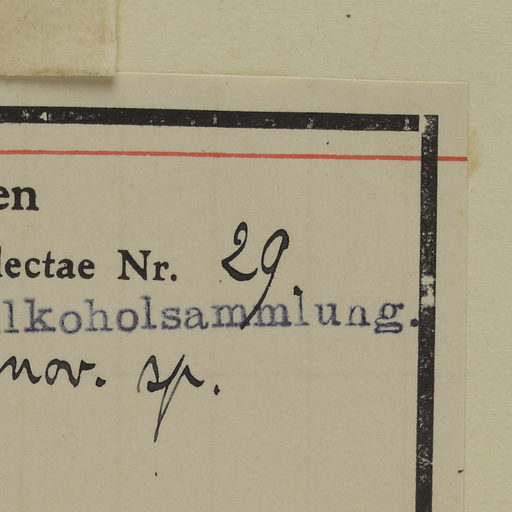 en
lectae Nr. 29.
lkoholsammlung.
nov. sp.